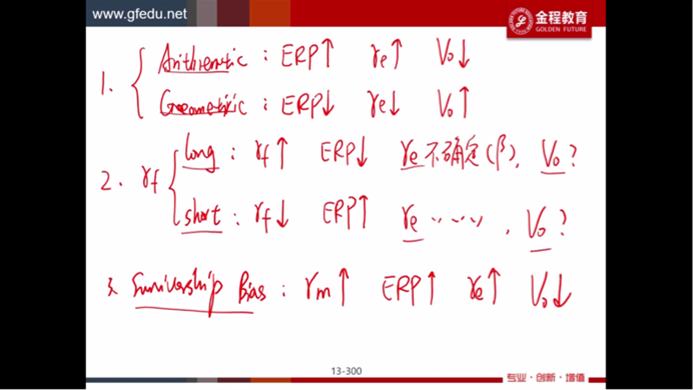 www.gfedu.net
金程教育
GOLDEN FUTURE
1. Arithmetic : ERP↑ re↑ V₀↓
Geometric : ERP↓ re↓ V₀↑
2. rf long : rf↑ ERP↓ re 不确定(β), V₀?
short : rf↓ ERP↑ re ……, V₀?
3. Survivership Bias : rm↑ ERP↑ re↑ V₀↓
13-300
专业·创新·增值